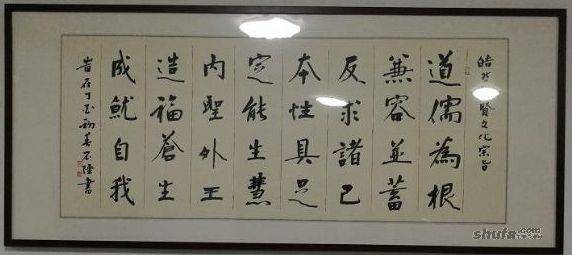 賢文化宗旨
道儒為根
兼容並蓄
反求諸己
本性具足
定能生慧
内聖外王
造福蒼生
成就自我
丁酉初春 書
shufa.com